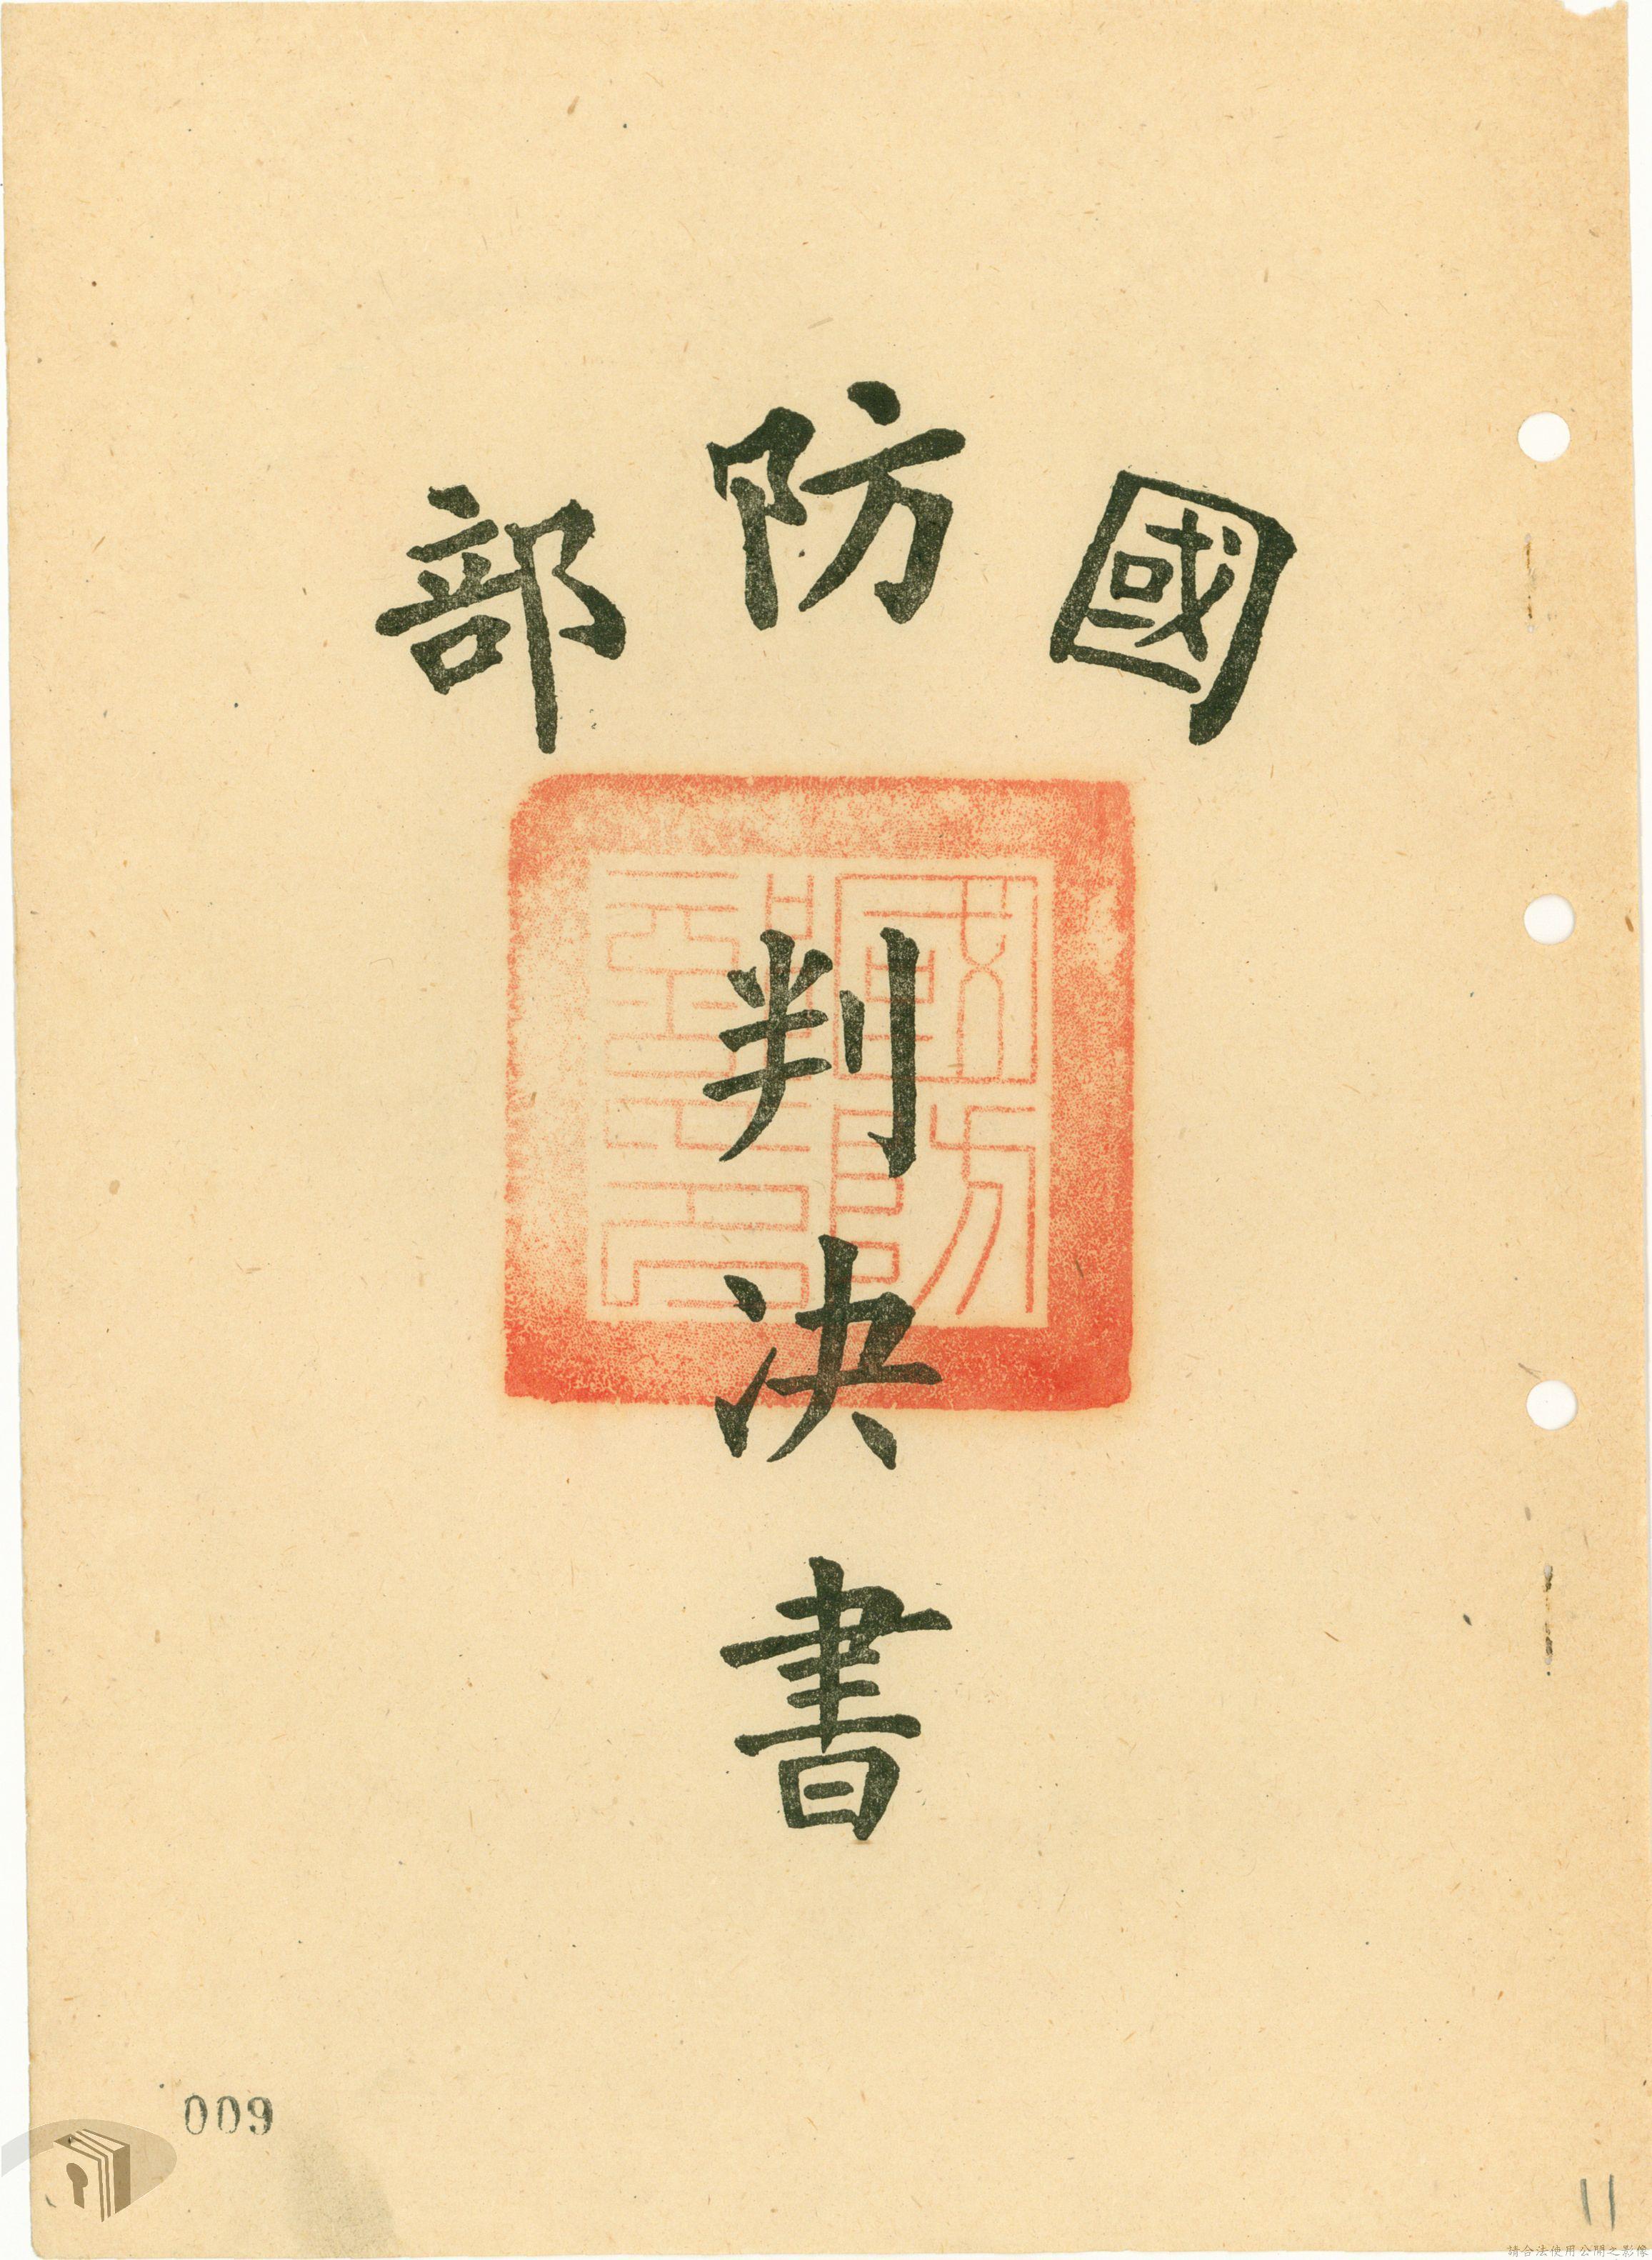 國防部
判決書
009
11
請合法使用公開之影像